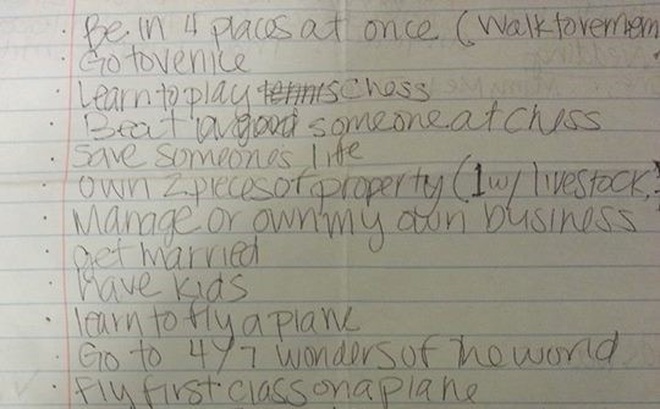 · Be in 4 places at once (Walk to remem
· Go to venice
· Learn to play tennis chess
· Beat a good someone at chess
· Save someones life
· Own 2 pieces of property (1 w/ livestock,
· Manage or own my own business
· get married
· have kids
· learn to fly a plane
· Go to 4/7 wonders of the world
· Fly first class on a plane